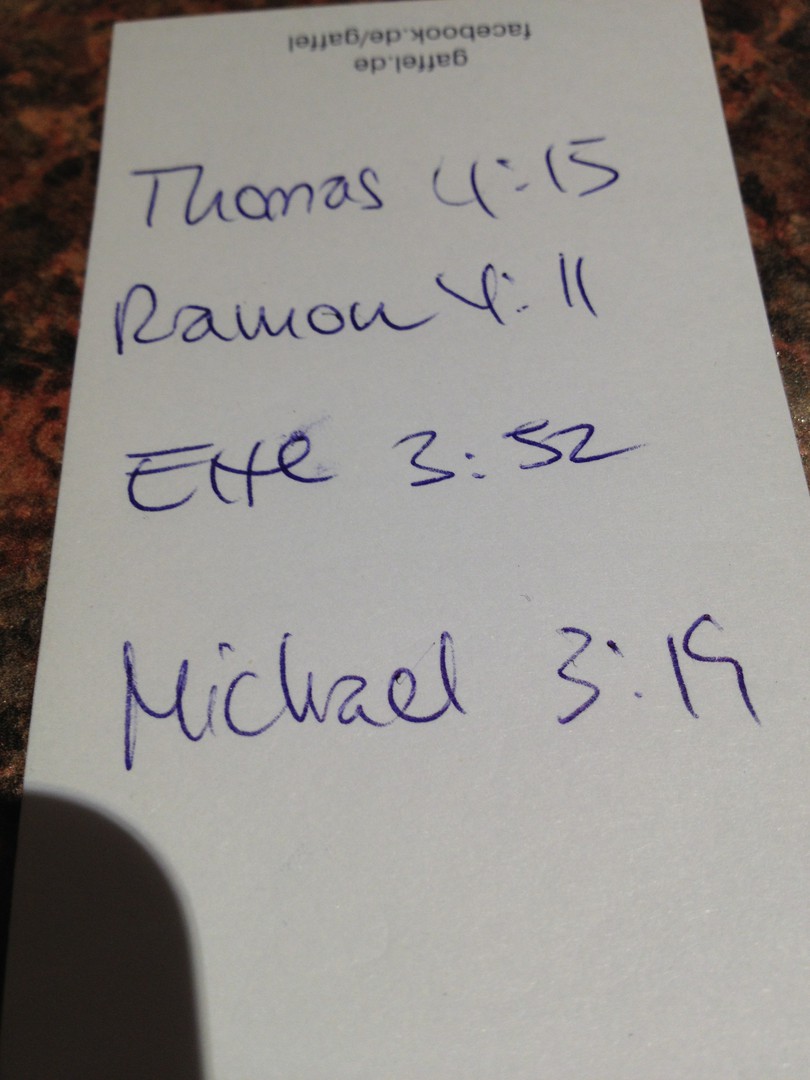 facebook.de/gaffel
gaffel.de
Thomas 4:15
Ramon 4:11
3:52
Michael 3:19